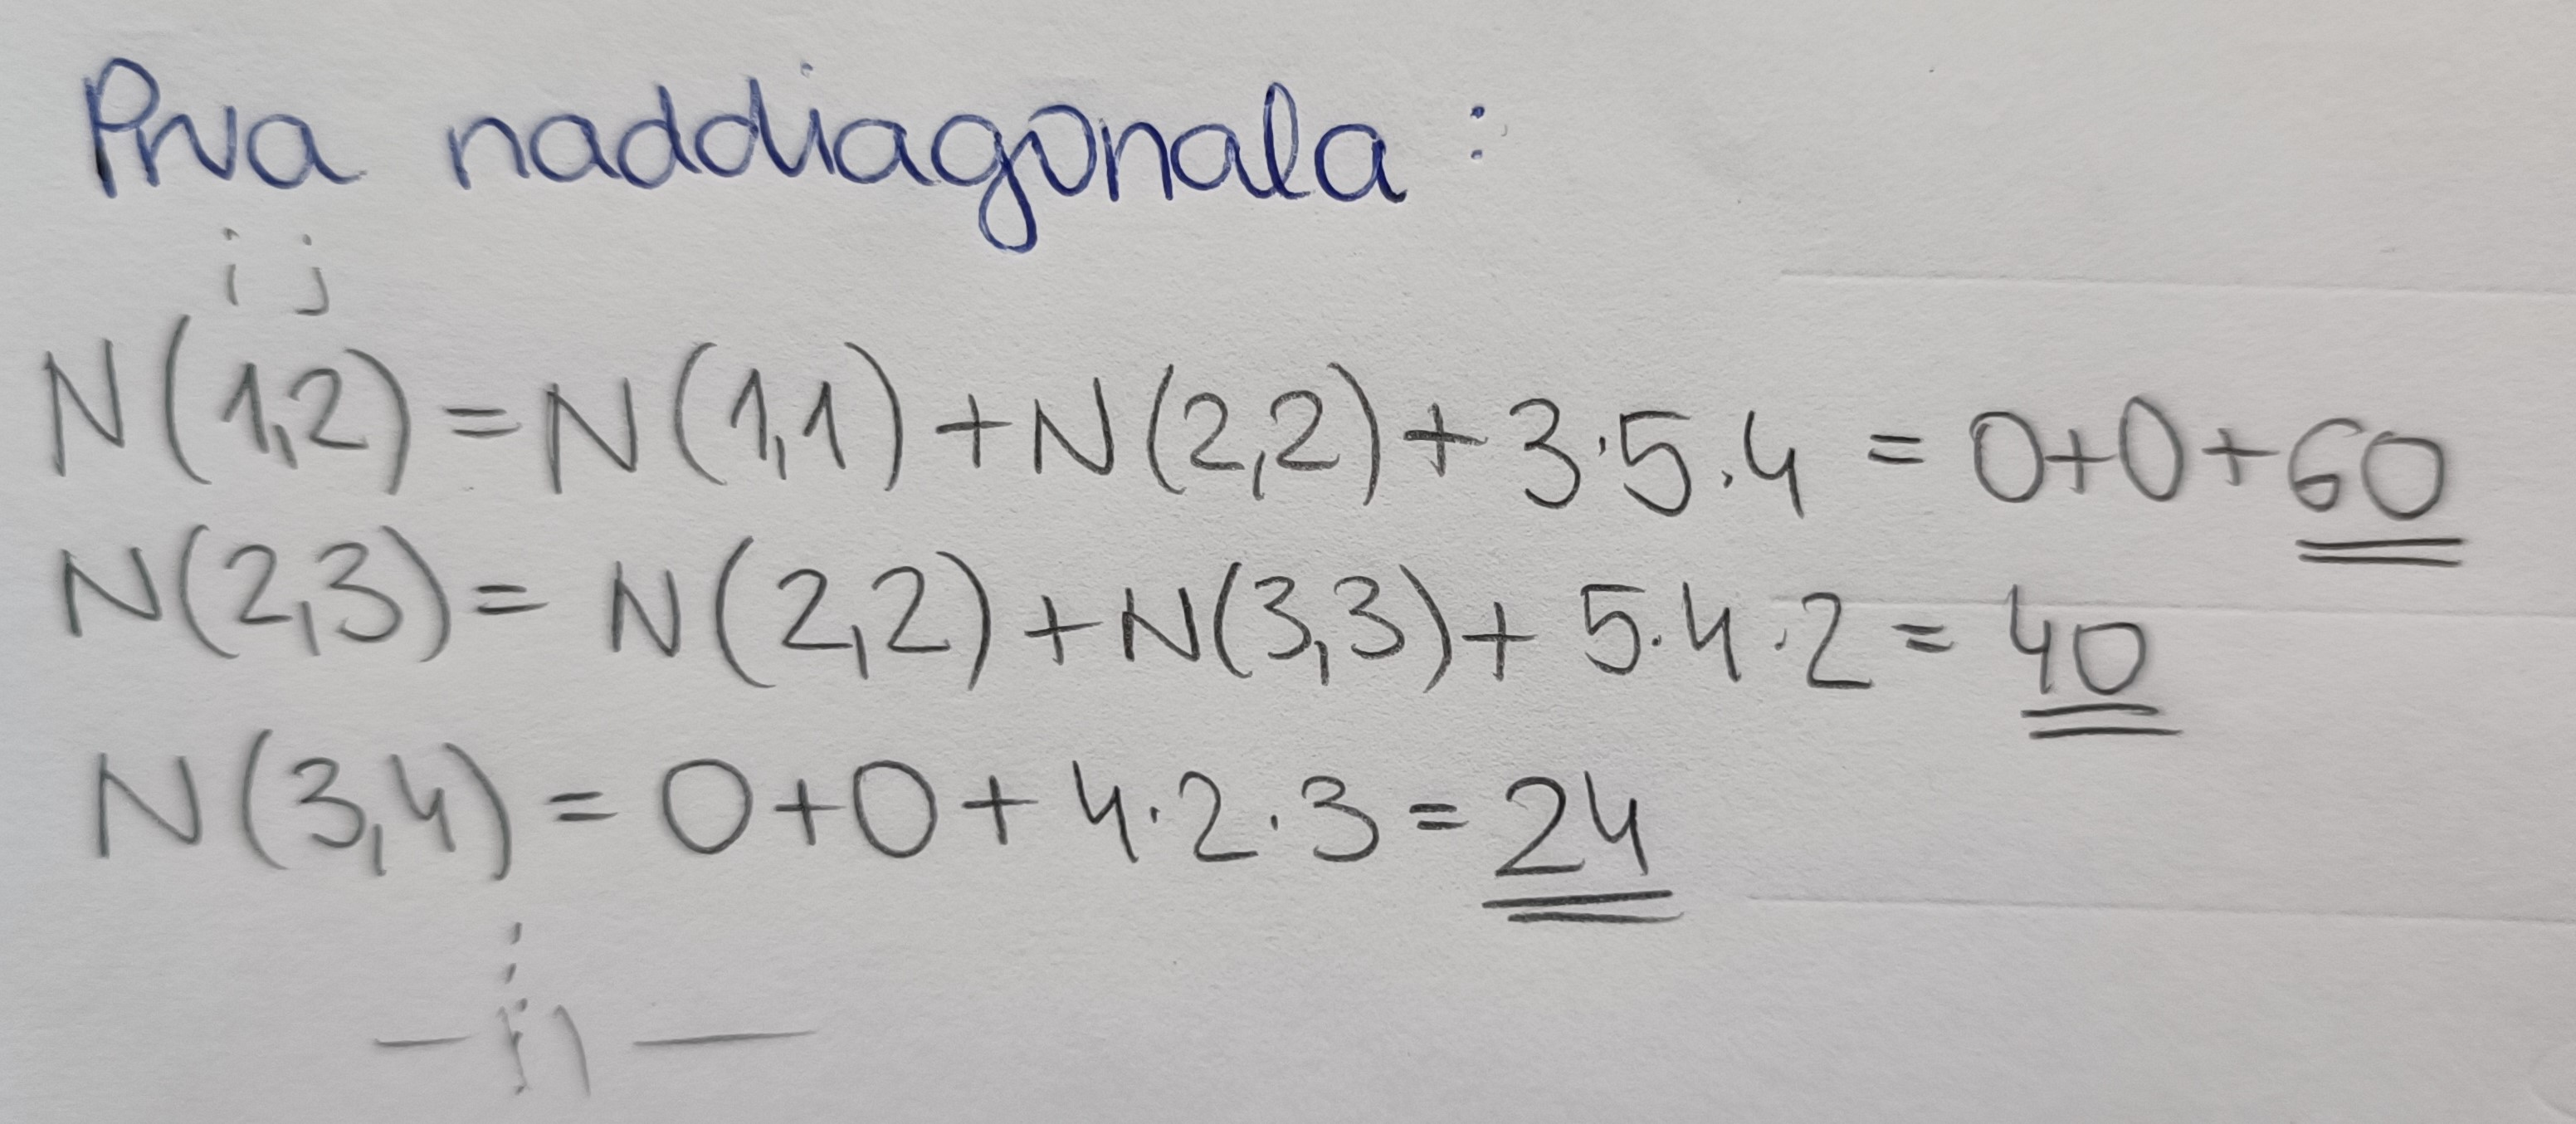 Prva naddiagonala:
i j
N(1,2)=N(1,1)+N(2,2)+3·5·4=0+0+60
N(2,3)=N(2,2)+N(3,3)+5·4·2=40
N(3,4)=0+0+4·2·3=24